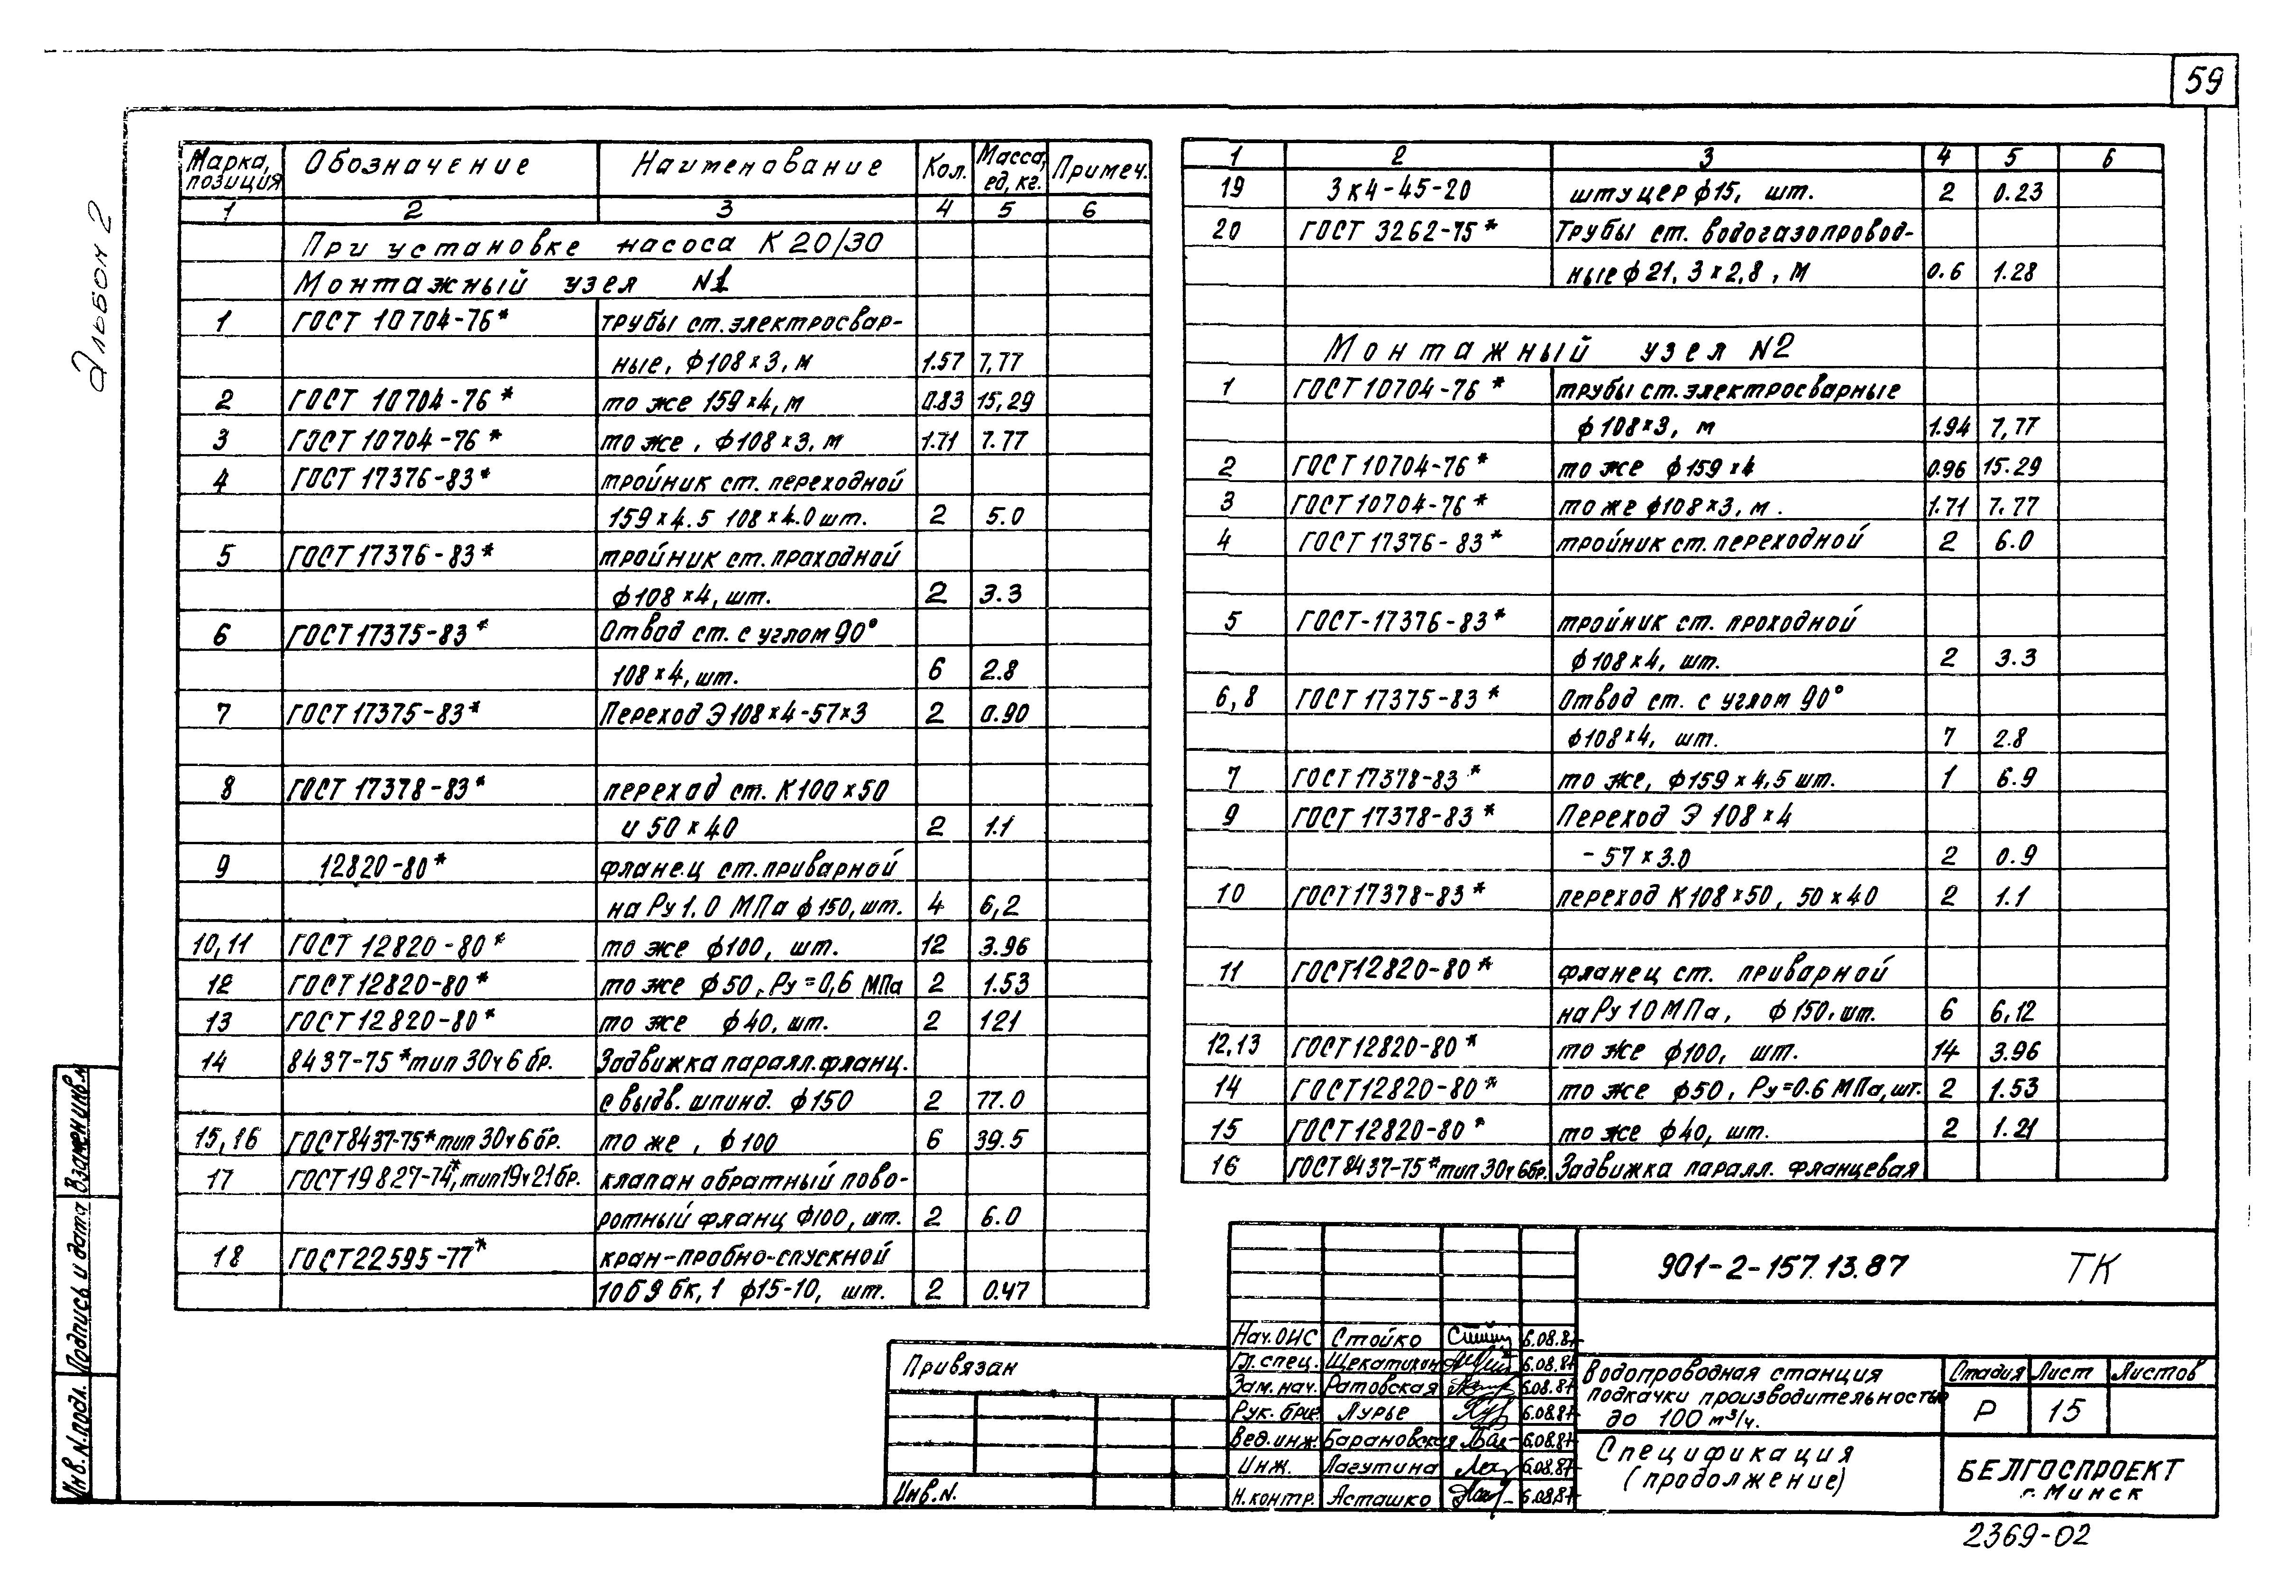 59
Альбом 2
Марка, позиция Обозначение Наименование Кол. Масса, ед, кг. Примеч.
1 2 3 4 5 6
При установке насоса К 20/30
Монтажный узел N1
1 ГОСТ 10704-76* трубы ст. электросвар-
ные, ф108×3, м 1.57 7,77
2 ГОСТ 10704-76* то же 159×4, м 0.83 15,29
3 ГОСТ 10704-76* то же, ф108×3, м 1.71 7.77
4 ГОСТ 17376-83* тройник ст. переходной
159×4.5 108×4.0 шт. 2 5.0
5 ГОСТ 17376-83* тройник ст. проходной
ф108×4, шт. 2 3.3
6 ГОСТ 17375-83* Отвод ст. с углом 90°
108×4, шт. 6 2.8
7 ГОСТ 17375-83* Переход Э108×4-57×3 2 0.90
8 ГОСТ 17378-83* переход ст. К100×50
и 50×40 2 1.1
9 12820-80* фланец ст. приварной
на Ру 1.0 МПа ф150, шт. 4 6,2
10,11 ГОСТ 12820-80* то же ф100, шт. 12 3.96
12 ГОСТ 12820-80* то же ф50, Ру=0,6 МПа 2 1.53
13 ГОСТ 12820-80* то же ф40, шт. 2 121
14 8437-75* тип 30ч6бр. Задвижка паралл. фланц.
с выдв. шпинд. ф150 2 77.0
15,16 ГОСТ 8437-75* тип 30ч6бр. то же, ф100 6 39.5
17 ГОСТ 19827-74*, тип 19ч21бр. клапан обратный пово-
ротный фланц ф100, шт. 2 6.0
18 ГОСТ 22595-77* кран-пробно-спускной
10б9бк,1 ф15-10, шт. 2 0.47
1 2 3 4 5 6
19 3к4-45-20 штуцер ф15, шт. 2 0.23
20 ГОСТ 3262-75* Трубы ст. водогазопровод-
ные ф21,3×2,8, м 0.6 1.28
Монтажный узел N2
1 ГОСТ 10704-76* трубы ст. электросварные
ф108×3, м 1.94 7,77
2 ГОСТ 10704-76* то же ф159×4 0.96 15.29
3 ГОСТ 10704-76* то же ф108×3, м. 1.71 7.77
4 ГОСТ 17376-83* тройник ст. переходной 2 6.0
5 ГОСТ-17376-83* тройник ст. проходной
ф108×4, шт. 2 3.3
6,8 ГОСТ 17375-83* Отвод ст. с углом 90°
ф108×4, шт. 7 2.8
7 ГОСТ 17378-83* то же, ф159×4,5 шт. 1 6.9
9 ГОСТ 17378-83* Переход Э 108×4
-57×3.0 2 0.9
10 ГОСТ 17378-83* переход К108×50, 50×40 2 1.1
11 ГОСТ 12820-80* фланец ст. приварной
на Ру 10 МПа, ф150, шт. 6 6,12
12,13 ГОСТ 12820-80* то же ф100, шт. 14 3.96
14 ГОСТ 12820-80* то же ф50, Ру=0.6 МПа, шт. 2 1.53
15 ГОСТ 12820-80* то же ф40, шт. 2 1.21
16 ГОСТ 8437-75* тип 30ч6бр. Задвижка паралл. фланцевая
Взамен инв.N
Подпись и дата
Инв.N.подл.
Привязан
Инв.N.
901-2-157.13.87 ТК
Нач.ОИС Стойко 6.08.87
Гл.спец. Щекатихин 6.08.87
Зам.нач. Ратовская 6.08.87
Рук.бриг. Лурье 6.08.87
Вед.инж. Барановская 6.08.87
Инж. Лагутина 6.08.87
Н.контр. Асташко 6.08.87
Водопроводная станция
подкачки производительностью
до 100 м³/ч.
Стадия Лист Листов
Р 15
Спецификация
(продолжение)
БЕЛГОСПРОЕКТ
г. Минск
2369-02